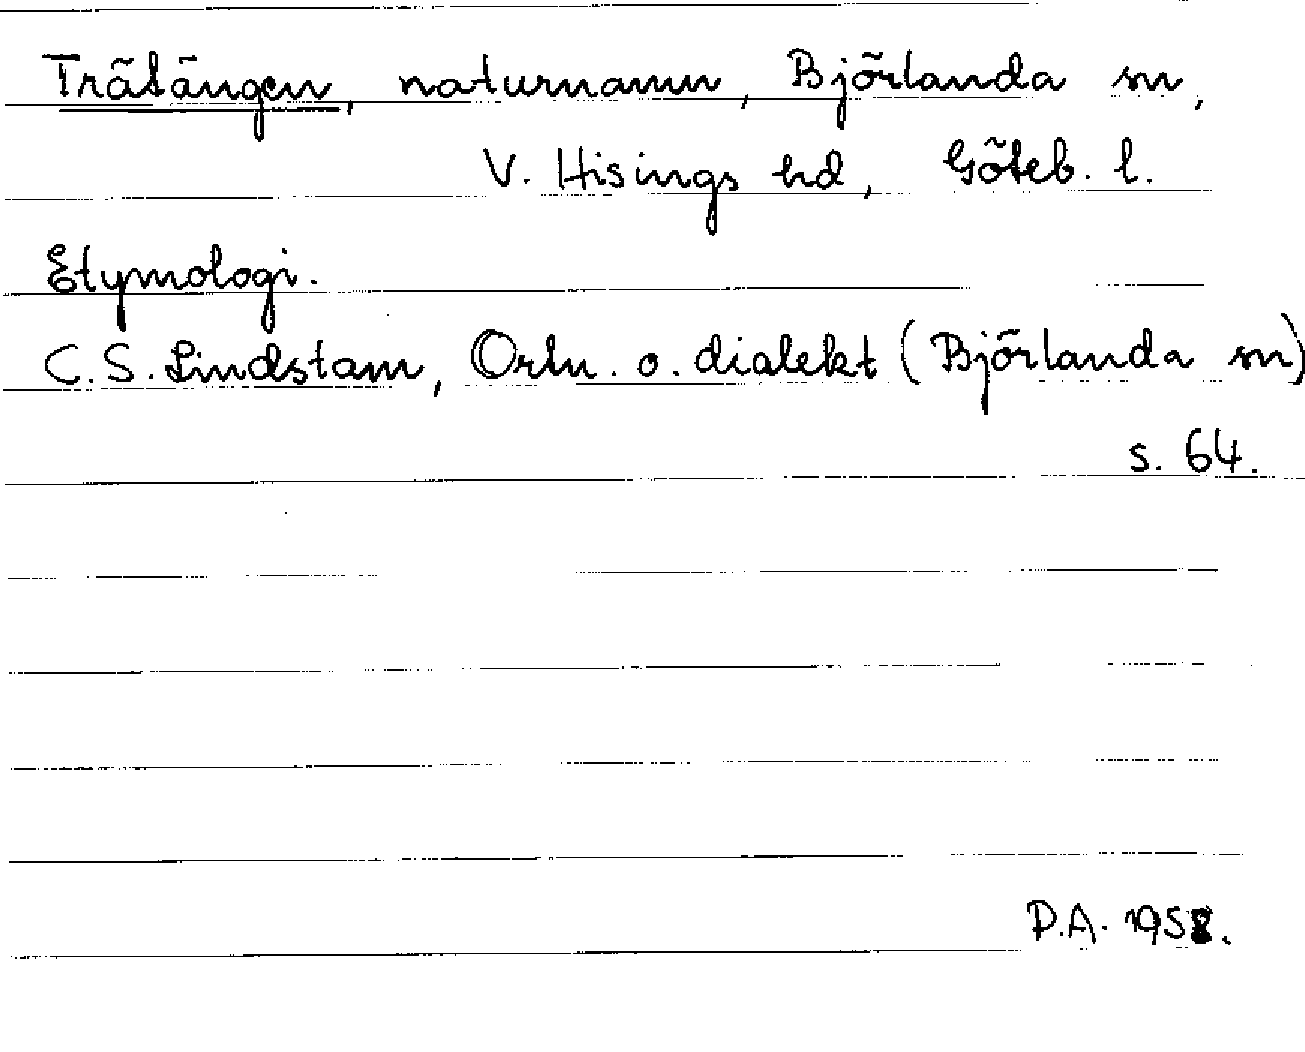 Trätängen, naturnamn, Björlanda sn,
V. Hisings hd, Göteb. l.
Etymologi.
C. S. Lindstam, Ortn. o. dialekt (Björlanda sn)
s. 64.
P.A. 1958.